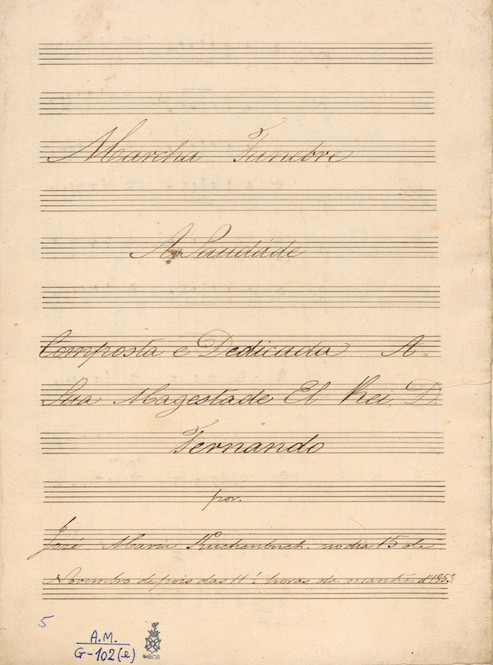 Marcha Funebre
A Saudade
Composta e Dedicada A
Sua Magestade El Rei D.
Fernando
por.
José Maria Kuchenbuch. no dia 15 de
Novembro depois das 11 horas da manhã d'1853
5
A.M.
G-102(e)